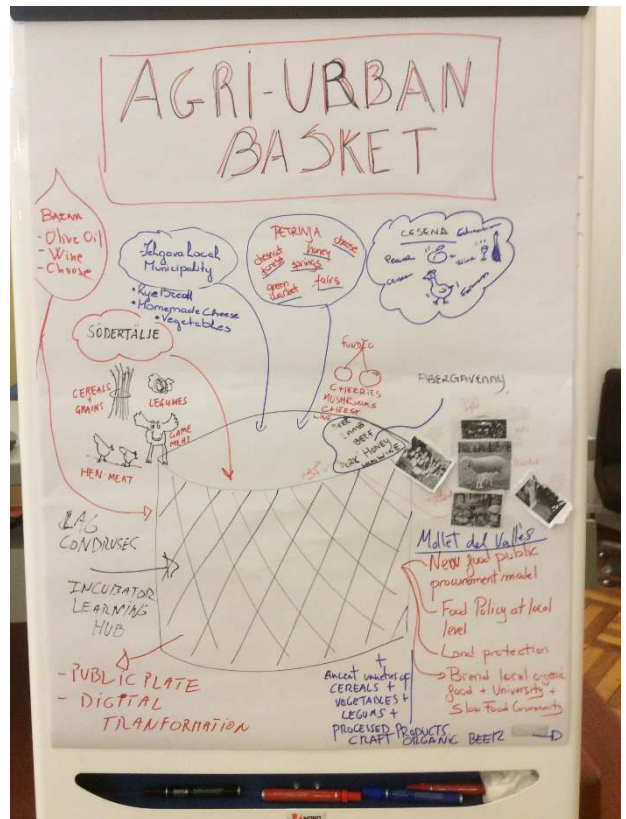 AGRI-URBAN
BASKET
BAENA
- Olive Oil
- Wine
- Choose
Jelgava Local
Municipality
• Rye Bread
• Homemade Cheese
• Vegetables
PETRINJA
chesnut
forest
honey
cheese
springs
green
market
fairs
CESENA
Wine
SÖDERTÄLJE
CEREALS
+
GRAINS
LEGUMES
GAME
MEAT
HEN MEAT
FUNDÃO
CHERRIES
MUSHRUMS
CHEESE
ABERGAVENNY
BEER
LAMB
BEEF
PORK HONEY
WINE
LAG
CONDRUSEC
INCUBATOR
LEARNING
HUB
- PUBLIC PLATE
- DIGITAL
TRANFORMATION
Mollet del Vallès
New food public
procurement model
Food Policy at local
level
Land protection
Brend local organic
food + University +
Slow Food Community
+
Ancient varieties of
CEREALS +
VEGETABLES +
LEGUMS +
PROCESSED PRODUCTS
CRAFT ORGANIC BEER
NOBO